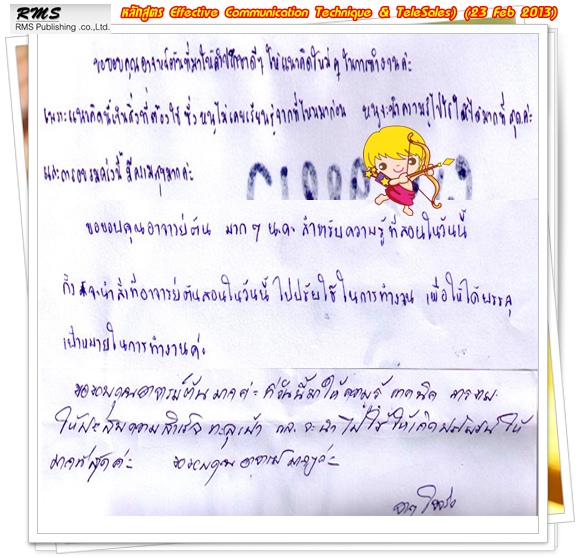 RMS
RMS Publishing .,co.,Ltd.
หลักสูตร Effective Communication Technique & TeleSales) (23 Feb 2013)
ขอขอบคุณอาจารย์ต้นที่มาให้คำปรึกษาดีๆ ให้แนวคิดใหม่ๆ ในการทำงานค่ะ
เพราะแนวคิดนี้เป็นสิ่งที่ต้องใช้ ซึ่งหนูไม่เคยเรียนรู้จากที่ไหนมาก่อน หนูจะนำความรู้ไปใช้ให้ได้มากที่สุดค่ะ
และการอบรมครั้งนี้ มีความสุขมากค่ะ
ขอขอบคุณอาจารย์ต้น มากๆ นะคะ สำหรับความรู้ที่สอนในวันนี้
จะนำสิ่งที่อาจารย์ต้นสอนในวันนี้ ไปปรับใช้ในการทำงาน เพื่อให้ได้บรรลุ
เป้าหมายในการทำงานค่ะ
ขอขอบคุณอาจารย์ต้น มากค่ะ ที่วันนี้มาให้ความรู้ เทคนิค
ให้ประสบความสำเร็จ ทะลุเป้า จะนำไปใช้ให้เกิดประโยชน์ให้
มากที่สุดค่ะ ขอขอบคุณอาจารย์มากๆค่ะ